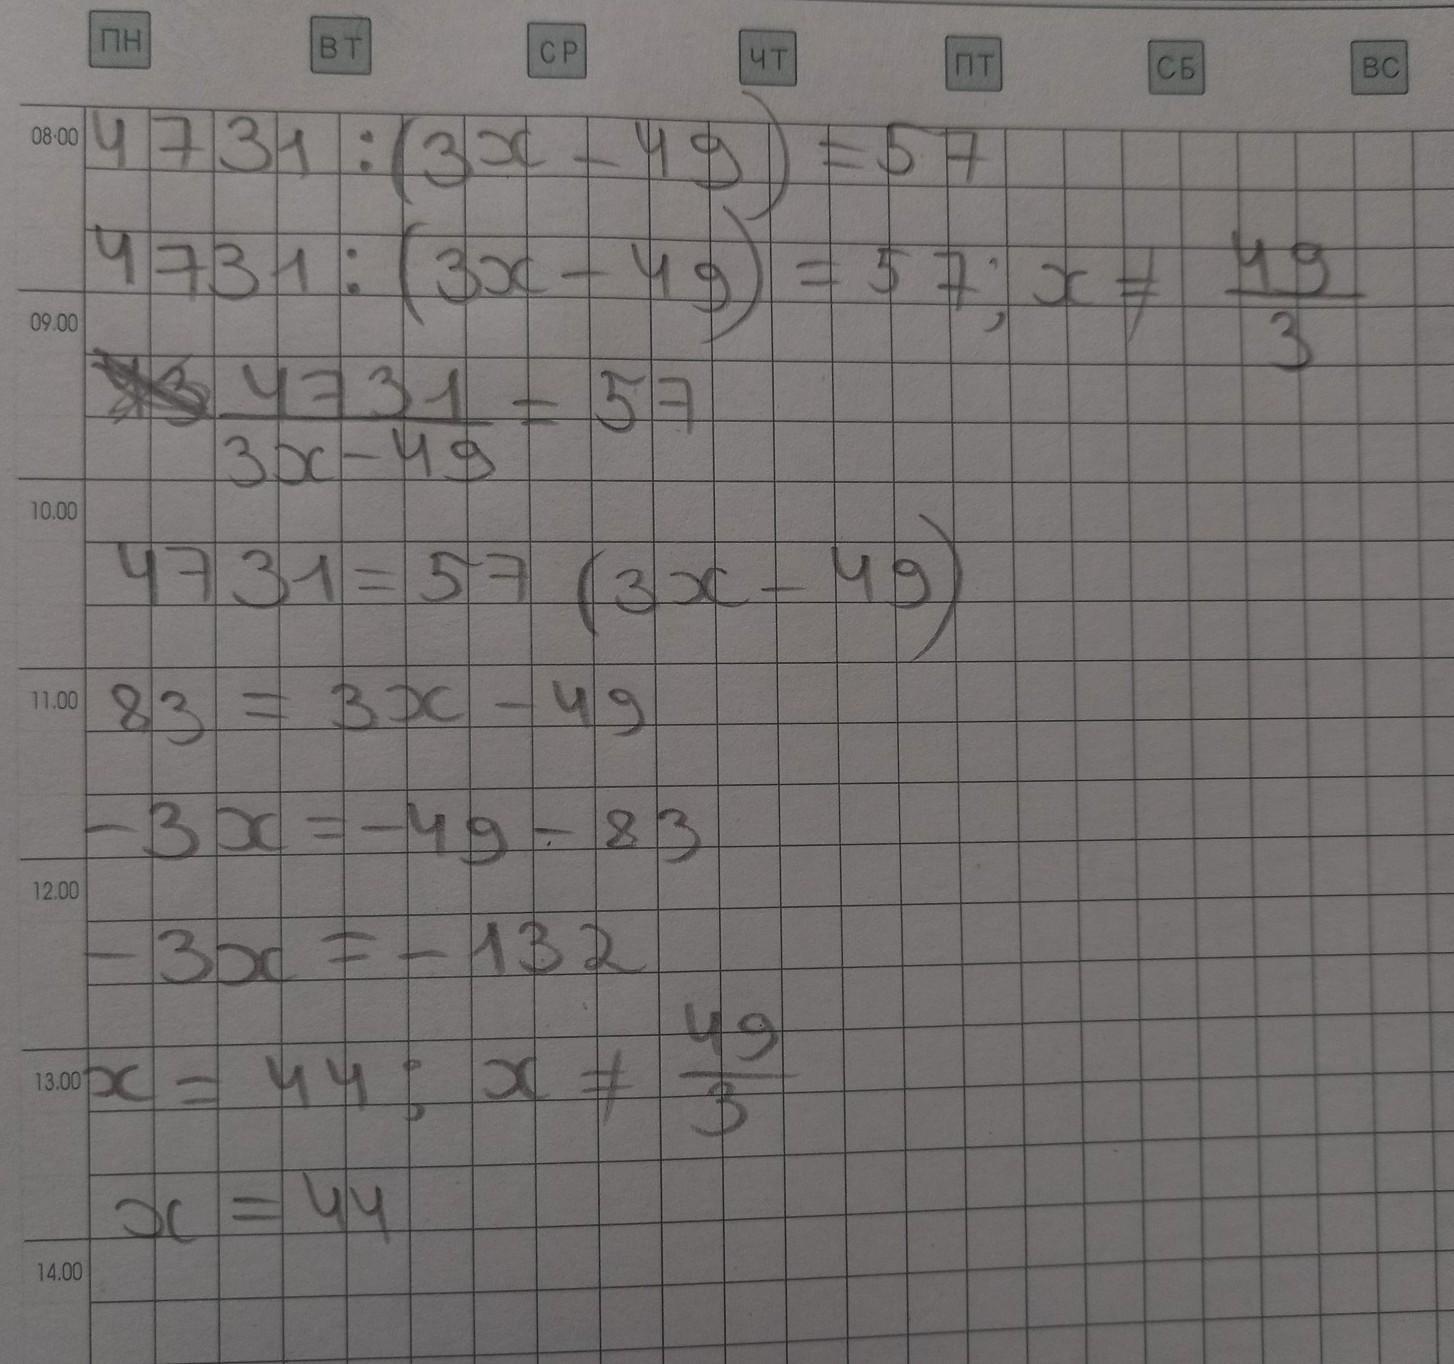 ПН ВТ СР ЧТ ПТ СБ ВС
08.00 4731 : (3x - 49) = 57
4731 : (3x - 49) = 57; x ≠ 49/3
09.00
4731/(3x - 49) = 57
10.00
4731 = 57 (3x - 49)
11.00 83 = 3x - 49
-3x = -49 - 83
12.00
-3x = -132
13.00 x = 44; x ≠ 49/3
x = 44
14.00